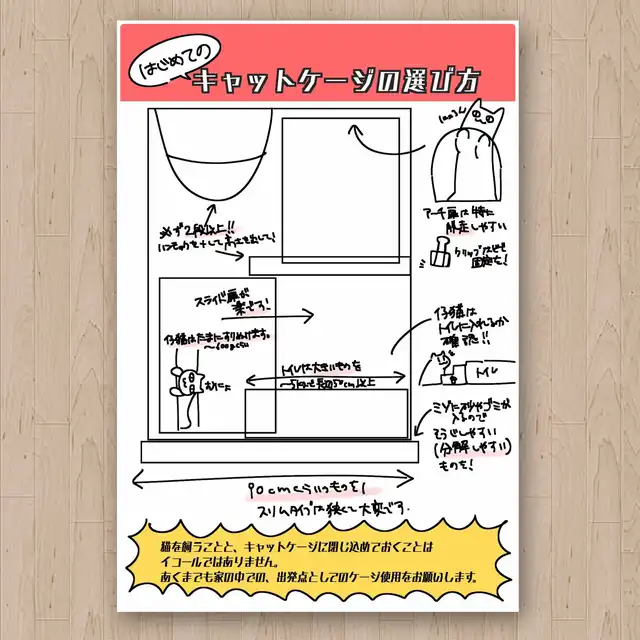 はじめての
キャットケージの選び方
アーチ扉は特に
脱走しやすい
クリップなどで
固定を!
必ず2段以上!!
スライド扉が
楽です!
仔猫はたまにすりぬけます。
〜600gくらい
むにょ
仔猫は
トイレに入れるか
確認!!
トイレ
トイレは大きいものを
ミゾに砂やゴミが
入るので
そうじしやすい
(分解しやすい)
ものを!
90cmくらいのものを!
スリムタイプは狭くて大変です。
猫を飼うことと、キャットケージに閉じ込めておくことは
イコールではありません。
あくまでも家の中での、出発点としてのケージ使用をお願いします。